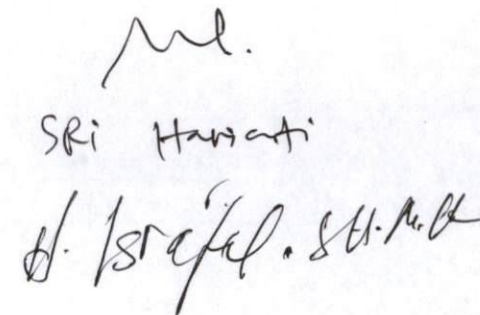 SRi Hariati
H. Israfel. SH. M.H